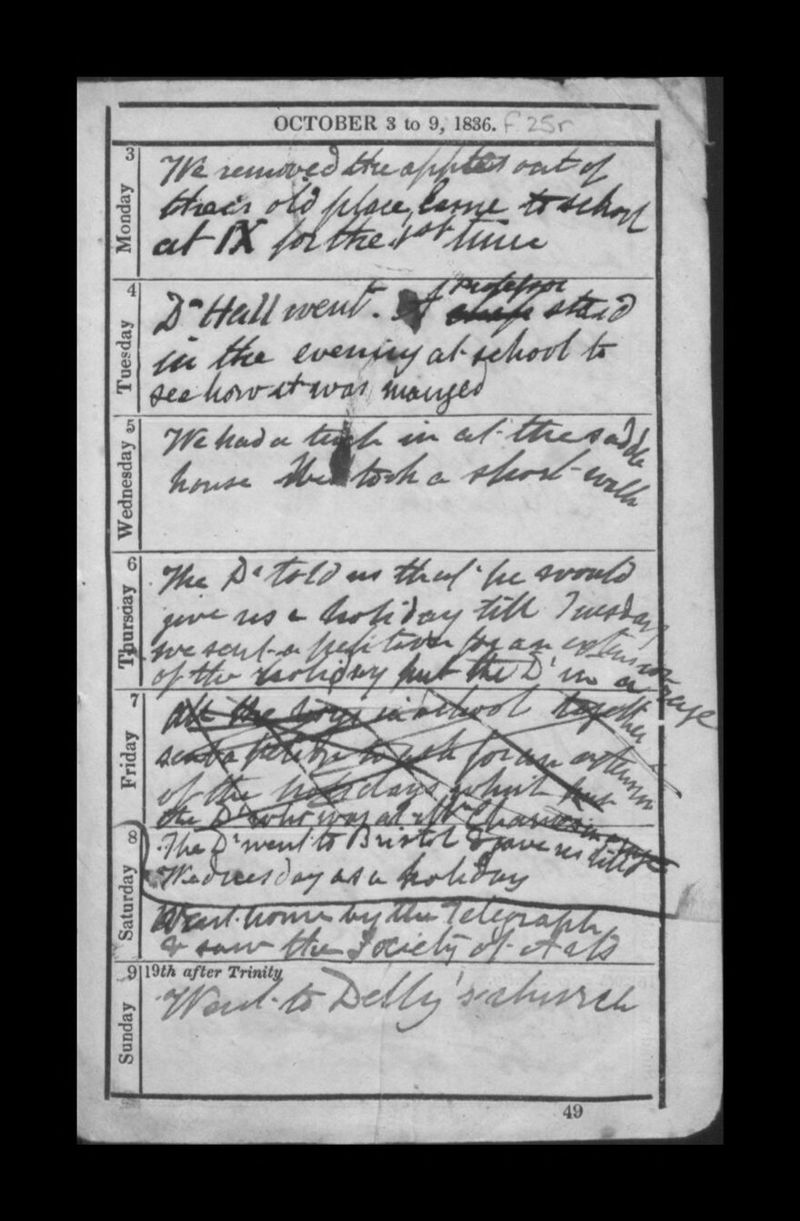 OCTOBER 3 to 9, 1836. f. 25r
Monday 3
We removed the apples out of
their old place, Came to school
at IX for the 1st time
Tuesday 4
Dr Hall went. Professor staid
in the evening at school to
see how it was manged
Wednesday 5
We had a tuck in at the saddle
house We took a short walk
Thursday 6
The Dr told us that he would
give us a holiday till Tuesday
we sent a petition for an extension
of the holiday but the Dr in a rage
Friday 7
All the boys in school together
sent a petition to ask for an extension
of the holidays which but
the Dr who was at Mr in a rage
Saturday 8
The Dr went to Bristol & gave us till
Wednesday as a holiday
Went home by the Telegraph
& saw the Society of Arts
Sunday 9
19th after Trinity
Went to Delly's church
49